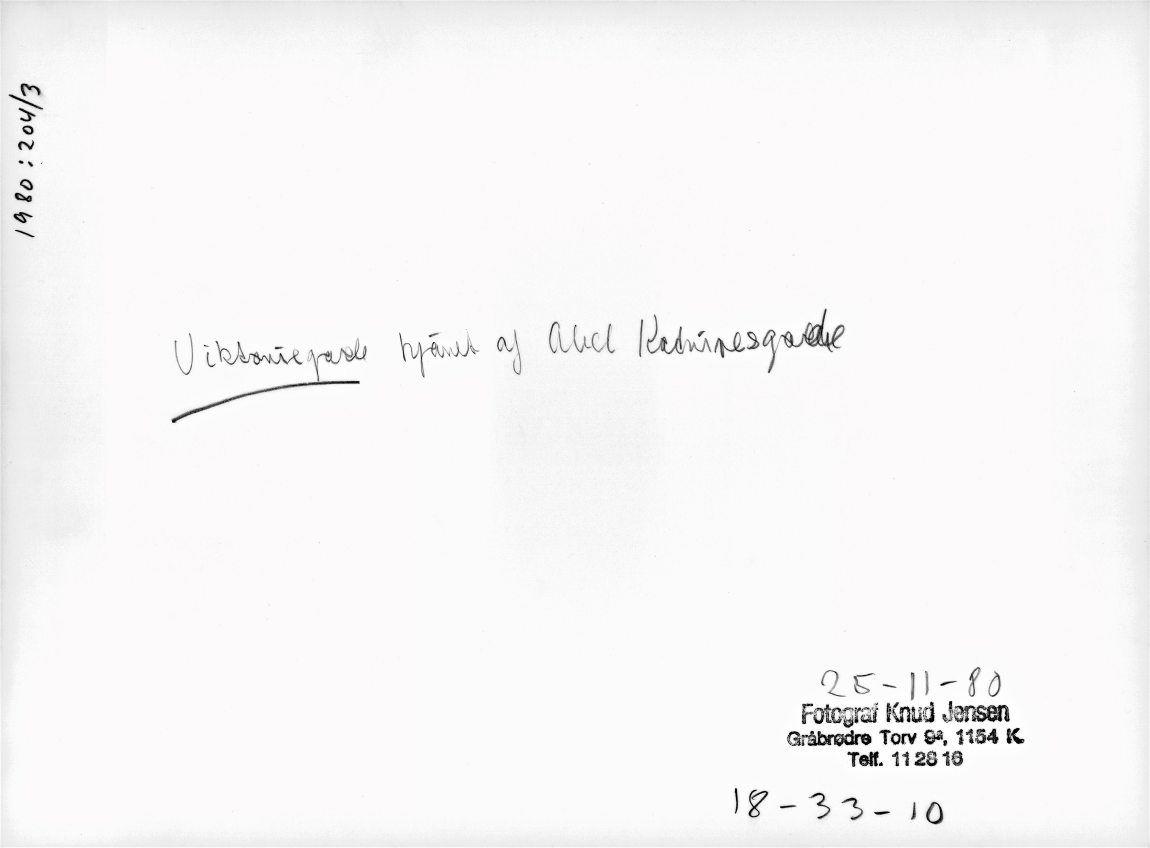 1980:204/3
Viktoriegade hjørnet af Abel Kathrinesgade
25-11-80
Fotograf Knud Jensen
Gråbrødre Torv 9ª, 1154 K.
Telf. 11 28 16
18-33-10